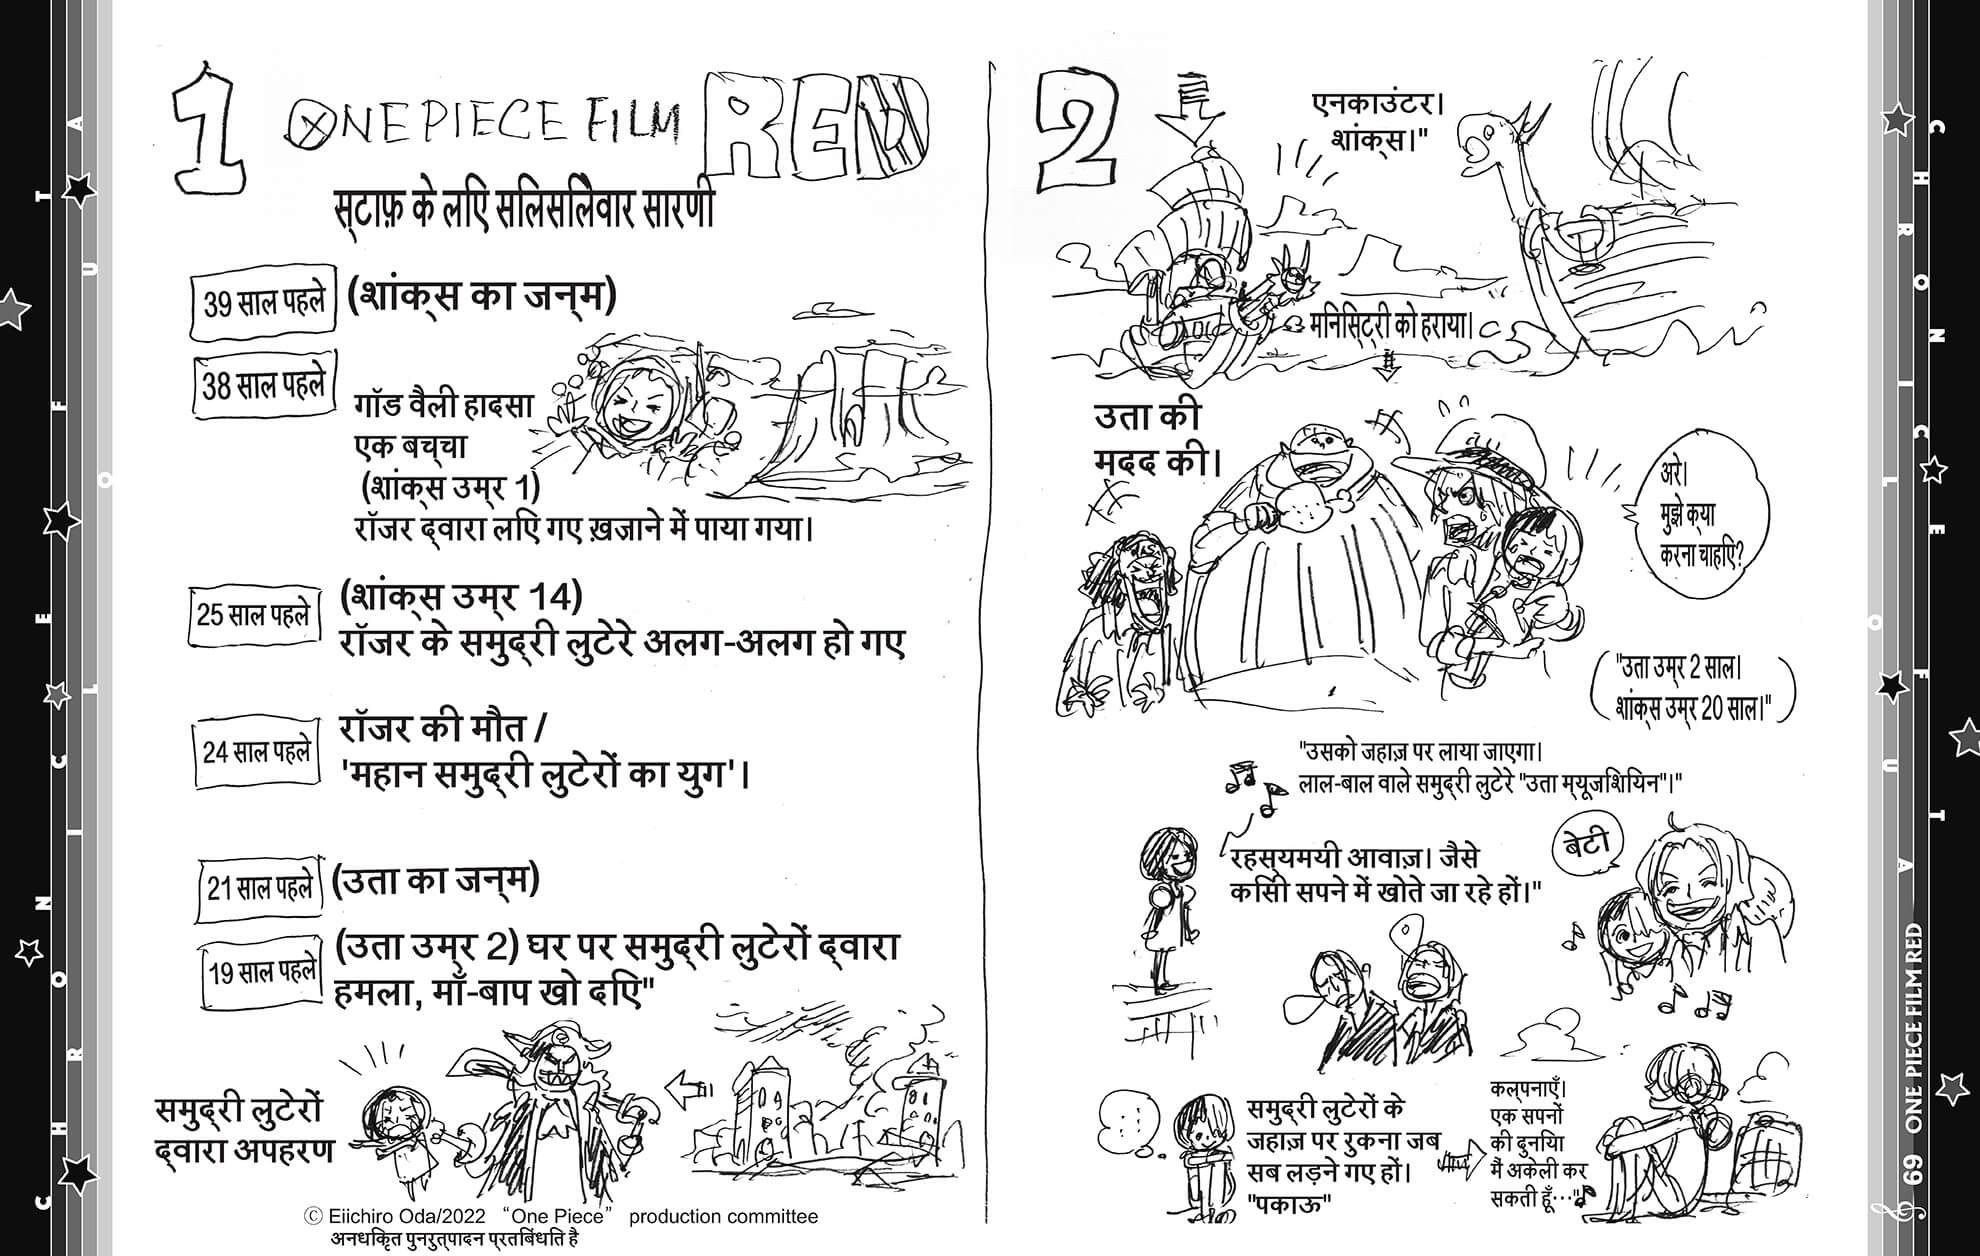 1
ONE PIECE FILM RED
स्टाफ़ के लिए सिलसिलेवार सारणी
39 साल पहले
(शांक्स का जन्म)
38 साल पहले
गॉड वैली हादसा
एक बच्चा
(शांक्स उम्र 1)
रॉजर द्वारा लिए गए ख़जाने में पाया गया।
25 साल पहले
(शांक्स उम्र 14)
रॉजर के समुद्री लुटेरे अलग-अलग हो गए
24 साल पहले
रॉजर की मौत /
'महान समुद्री लुटेरों का युग'।
21 साल पहले
(उता का जन्म)
19 साल पहले
(उता उम्र 2) घर पर समुद्री लुटेरों द्वारा
हमला, माँ-बाप खो दिए"
समुद्री लुटेरों
द्वारा अपहरण
Ⓒ Eiichiro Oda/2022 “One Piece” production committee
अनधिकृत पुनरुत्पादन प्रतिबंधित है
2
एनकाउंटर।
शांक्स।"
मिनिस्ट्री को हराया।
उता की
मदद की।
अरे।
मुझे क्या
करना चाहिए?
"उता उम्र 2 साल।
शांक्स उम्र 20 साल।"
"उसको जहाज़ पर लाया जाएगा।
लाल-बाल वाले समुद्री लुटेरे "उता म्यूजिशियन"।"
रहस्यमयी आवाज़। जैसे
किसी सपने में खोते जा रहे हों।"
बेटी
समुद्री लुटेरों के
जहाज़ पर रुकना जब
सब लड़ने गए हों।
"पकाऊ"
कल्पनाएँ।
एक सपनों
की दुनिया
मैं अकेली कर
सकती हूँ…"
CHRONICLE OF UTA
CHRONICLE OF UTA
69 ONE PIECE FILM RED